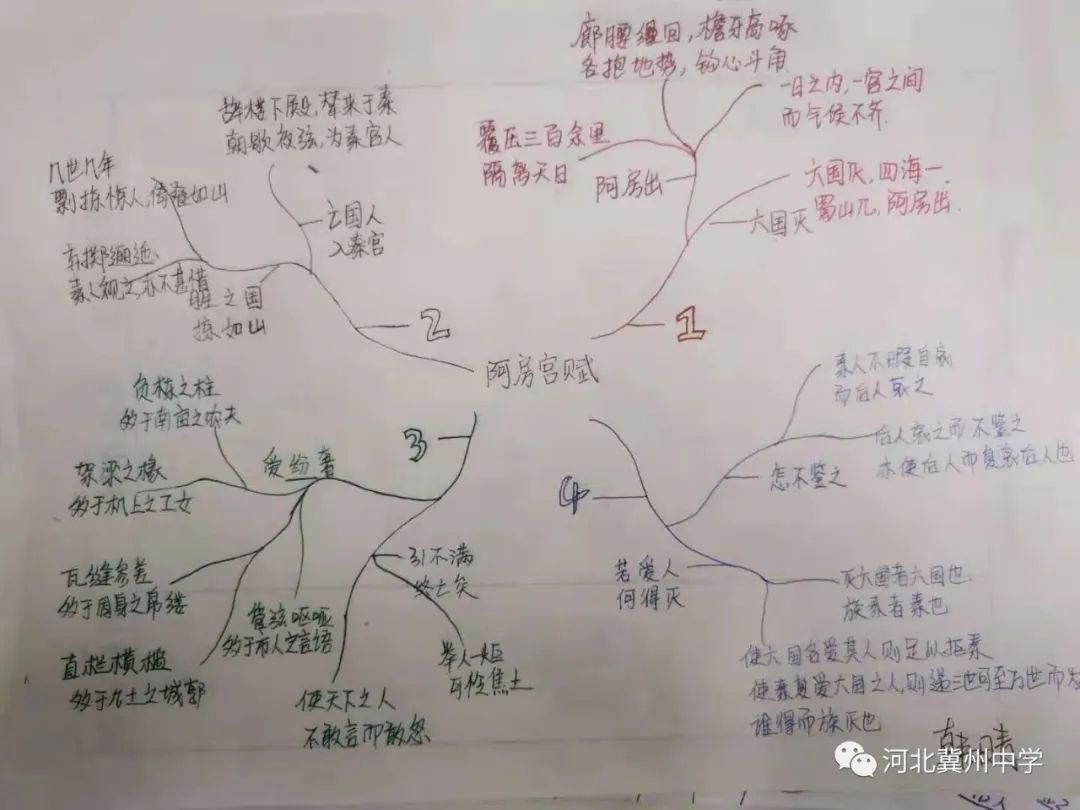 阿房宫赋
1
六国灭
六国灭,四海一.
蜀山兀,阿房出.
阿房出
覆压三百余里
隔离天日
廊腰缦回,檐牙高啄
各抱地势,钩心斗角
一日之内,一宫之间
而气候不齐.
2
亡国人
入秦宫
辞楼下殿,辇来于秦
朝歌夜弦,为秦宫人
之国
如山
几世几年
剽掠其人,倚叠如山
弃掷逦迤
秦人视之,亦不甚惜
3
爱纷奢
负栋之柱
多于南亩之农夫
架梁之椽
多于机上之工女
瓦缝参差
多于周身之帛缕
直栏横槛
多于九土之城郭
管弦呕哑
多于市人之言语
引不满
终亡矣
使天下之人
不敢言而敢怒
举人一炬
可怜焦土
4
怎不鉴之
秦人不暇自哀
而后人哀之
后人哀之而不鉴之
亦使后人而复哀后人也
若爱人
何得灭
灭六国者六国也
族秦者秦也
使六国各爱其人则足以拒秦
使秦复爱六国之人,则递三世可至万世而为
谁得而族灭也
河北冀州中学